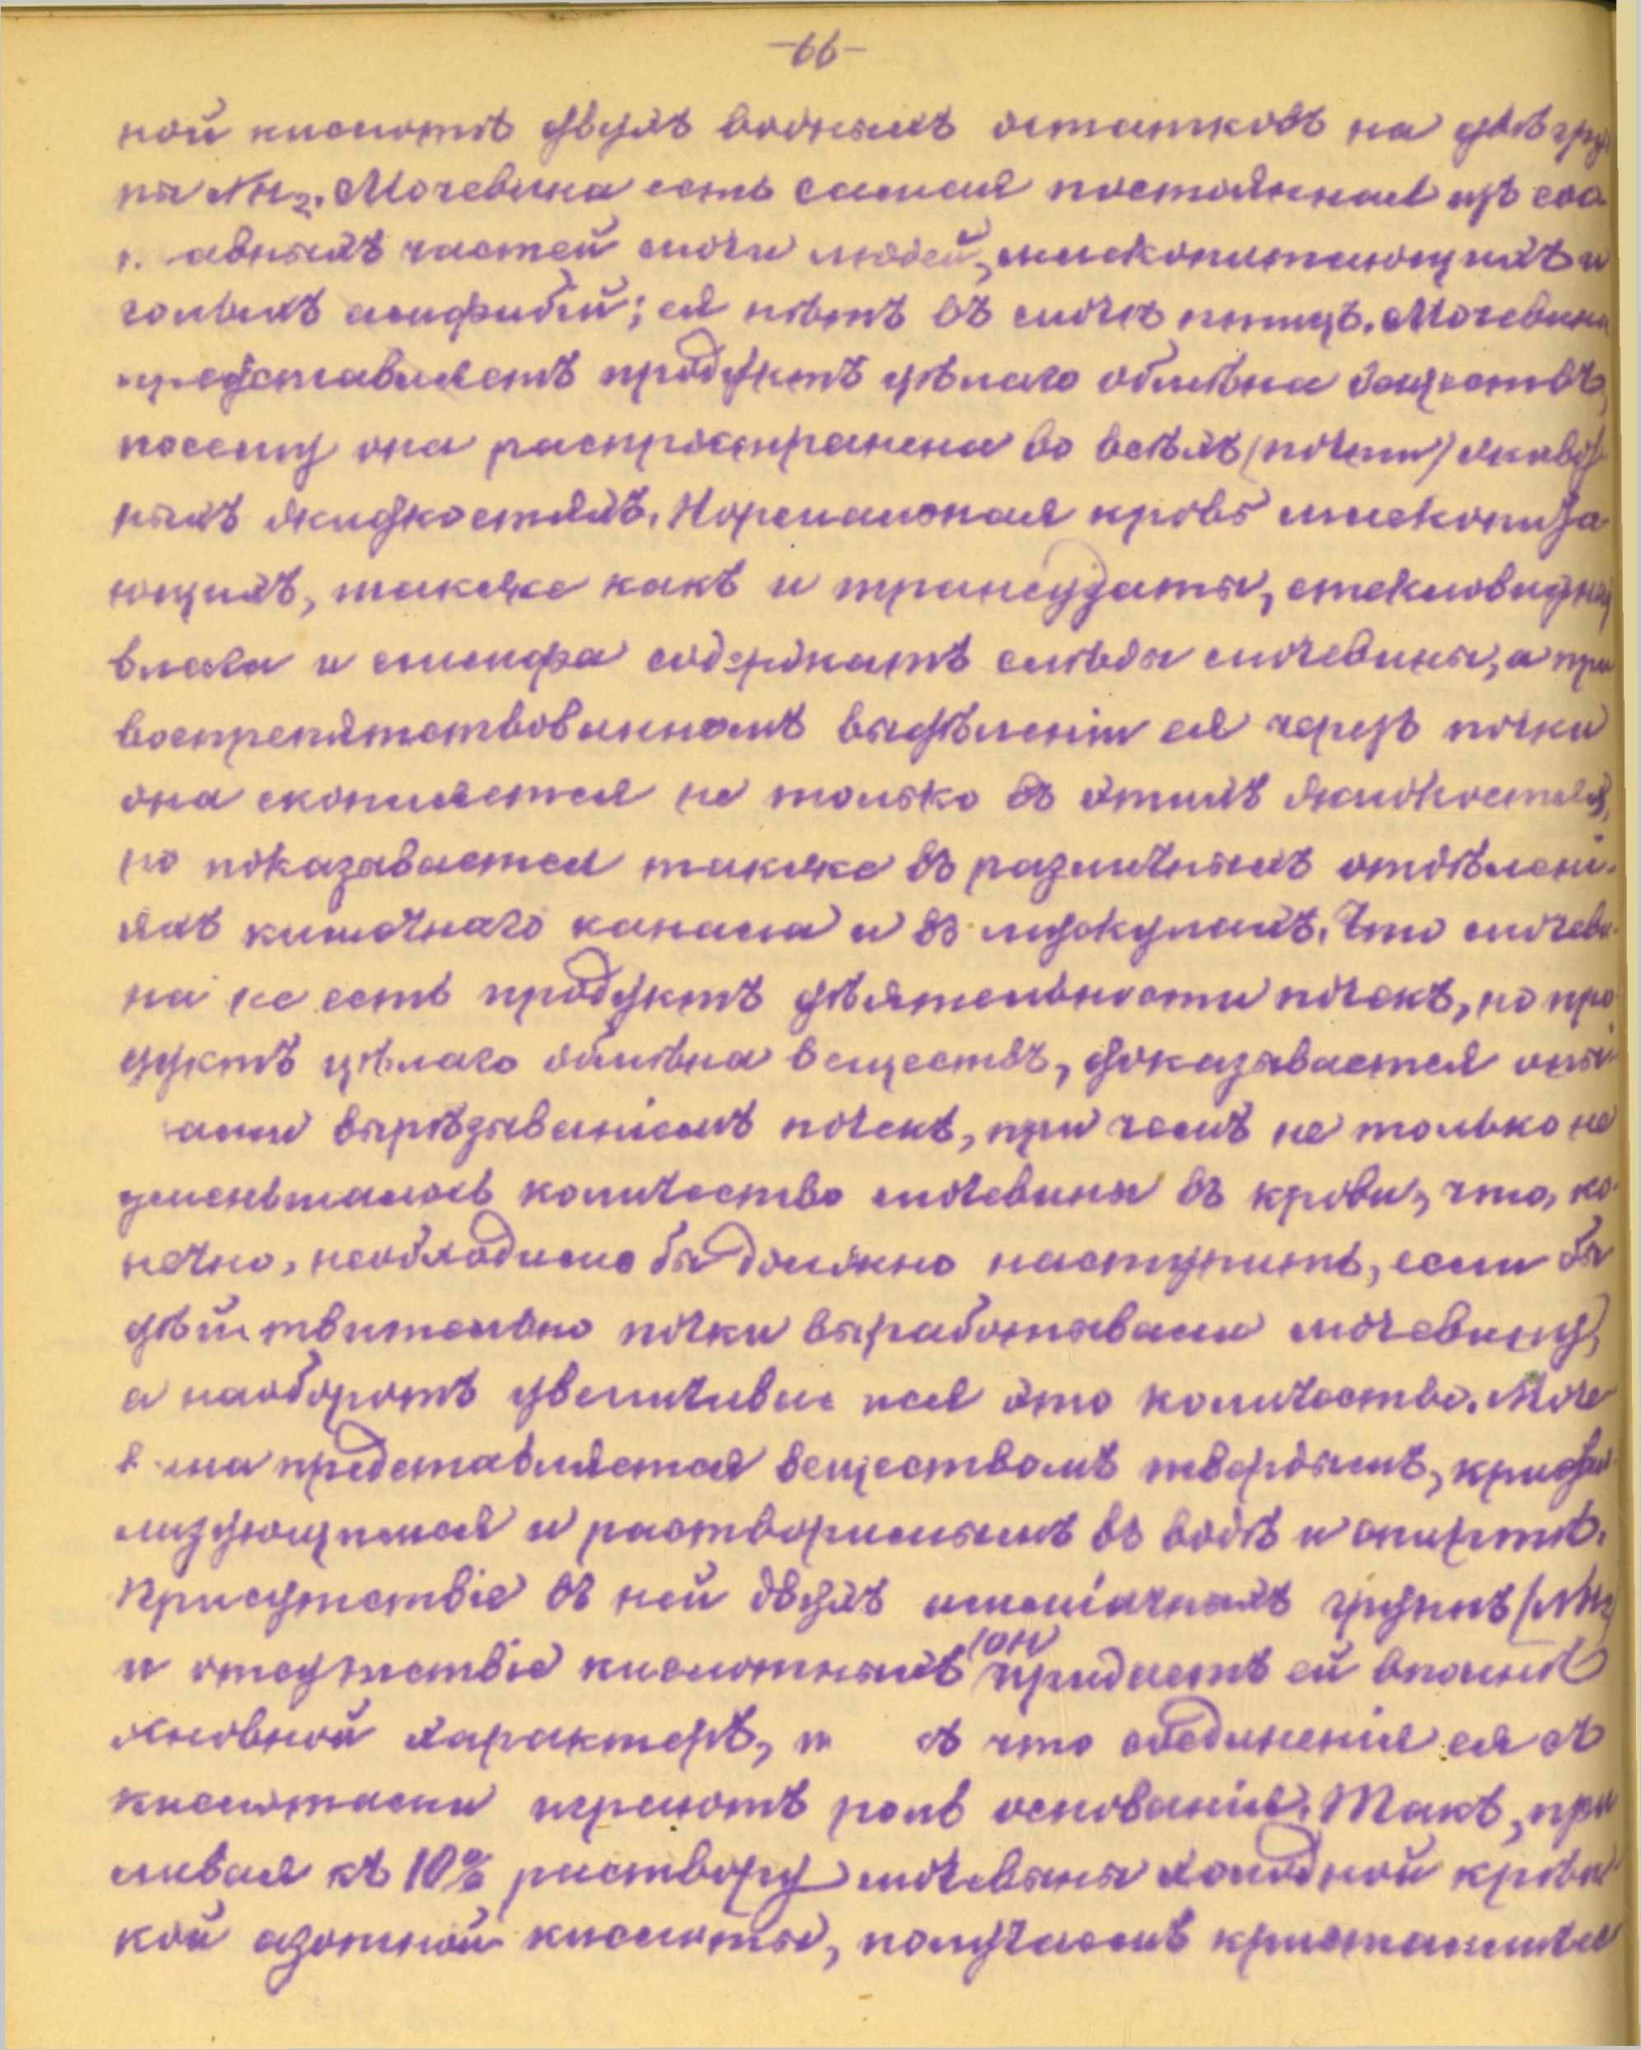 -66-
ной кислотѣ двухъ водныхъ остатковъ на двѣ груп
пы NH2. Мочевина есть самая постоянная изъ сос
авныхъ частей мочи людей, млекопитающихъ и
голыхъ амфибій; ея нѣтъ въ мочѣ птицъ. Мочевина
представляетъ продуктъ цѣлаго обмѣна веществъ,
посему она распространена во всѣхъ (почти) живот
ныхъ жидкостяхъ. Нормальная кровь млекопита
ющихъ, также какъ и трансудаты, стекловидная
влага и лимфа содержатъ слѣды мочевины, а при
воспрепятствованномъ выдѣленіи ея черезъ почки
она скопляется не только въ этихъ жидкостяхъ,
но показывается также въ различныхъ отдѣлені-
яхъ кишечнаго канала и въ мускулахъ. Что мочеви-
на не есть продуктъ дѣятельности почекъ, но про
дуктъ цѣлаго обмѣна веществъ, доказывается опы-
ами вырѣзываніемъ почекъ, при чемъ не только не
уменьшалось количество мочевины въ крови, что, ко-
нечно, необходимо бы должно наступить, если бы
дѣйствительно почки вырабатывали мочевину,
а наоборотъ увеличивае лся это количество. Моче
вина представляется веществомъ твердымъ, кристал
лизующимся и растворимымъ въ водѣ и спиртѣ.
Присутствіе въ ней двухъ амміачныхъ группъ (NH2)
и отсутствіе кислотныхъ (OH) придаетъ ей вполнѣ
основной характеръ, т ъ что соединенія ея съ
кислотами играютъ роль основанія. Такъ, при
ливая къ 10% раствору мочевины холодной крѣп
кой азотной кислоты, получаемъ кристалличес